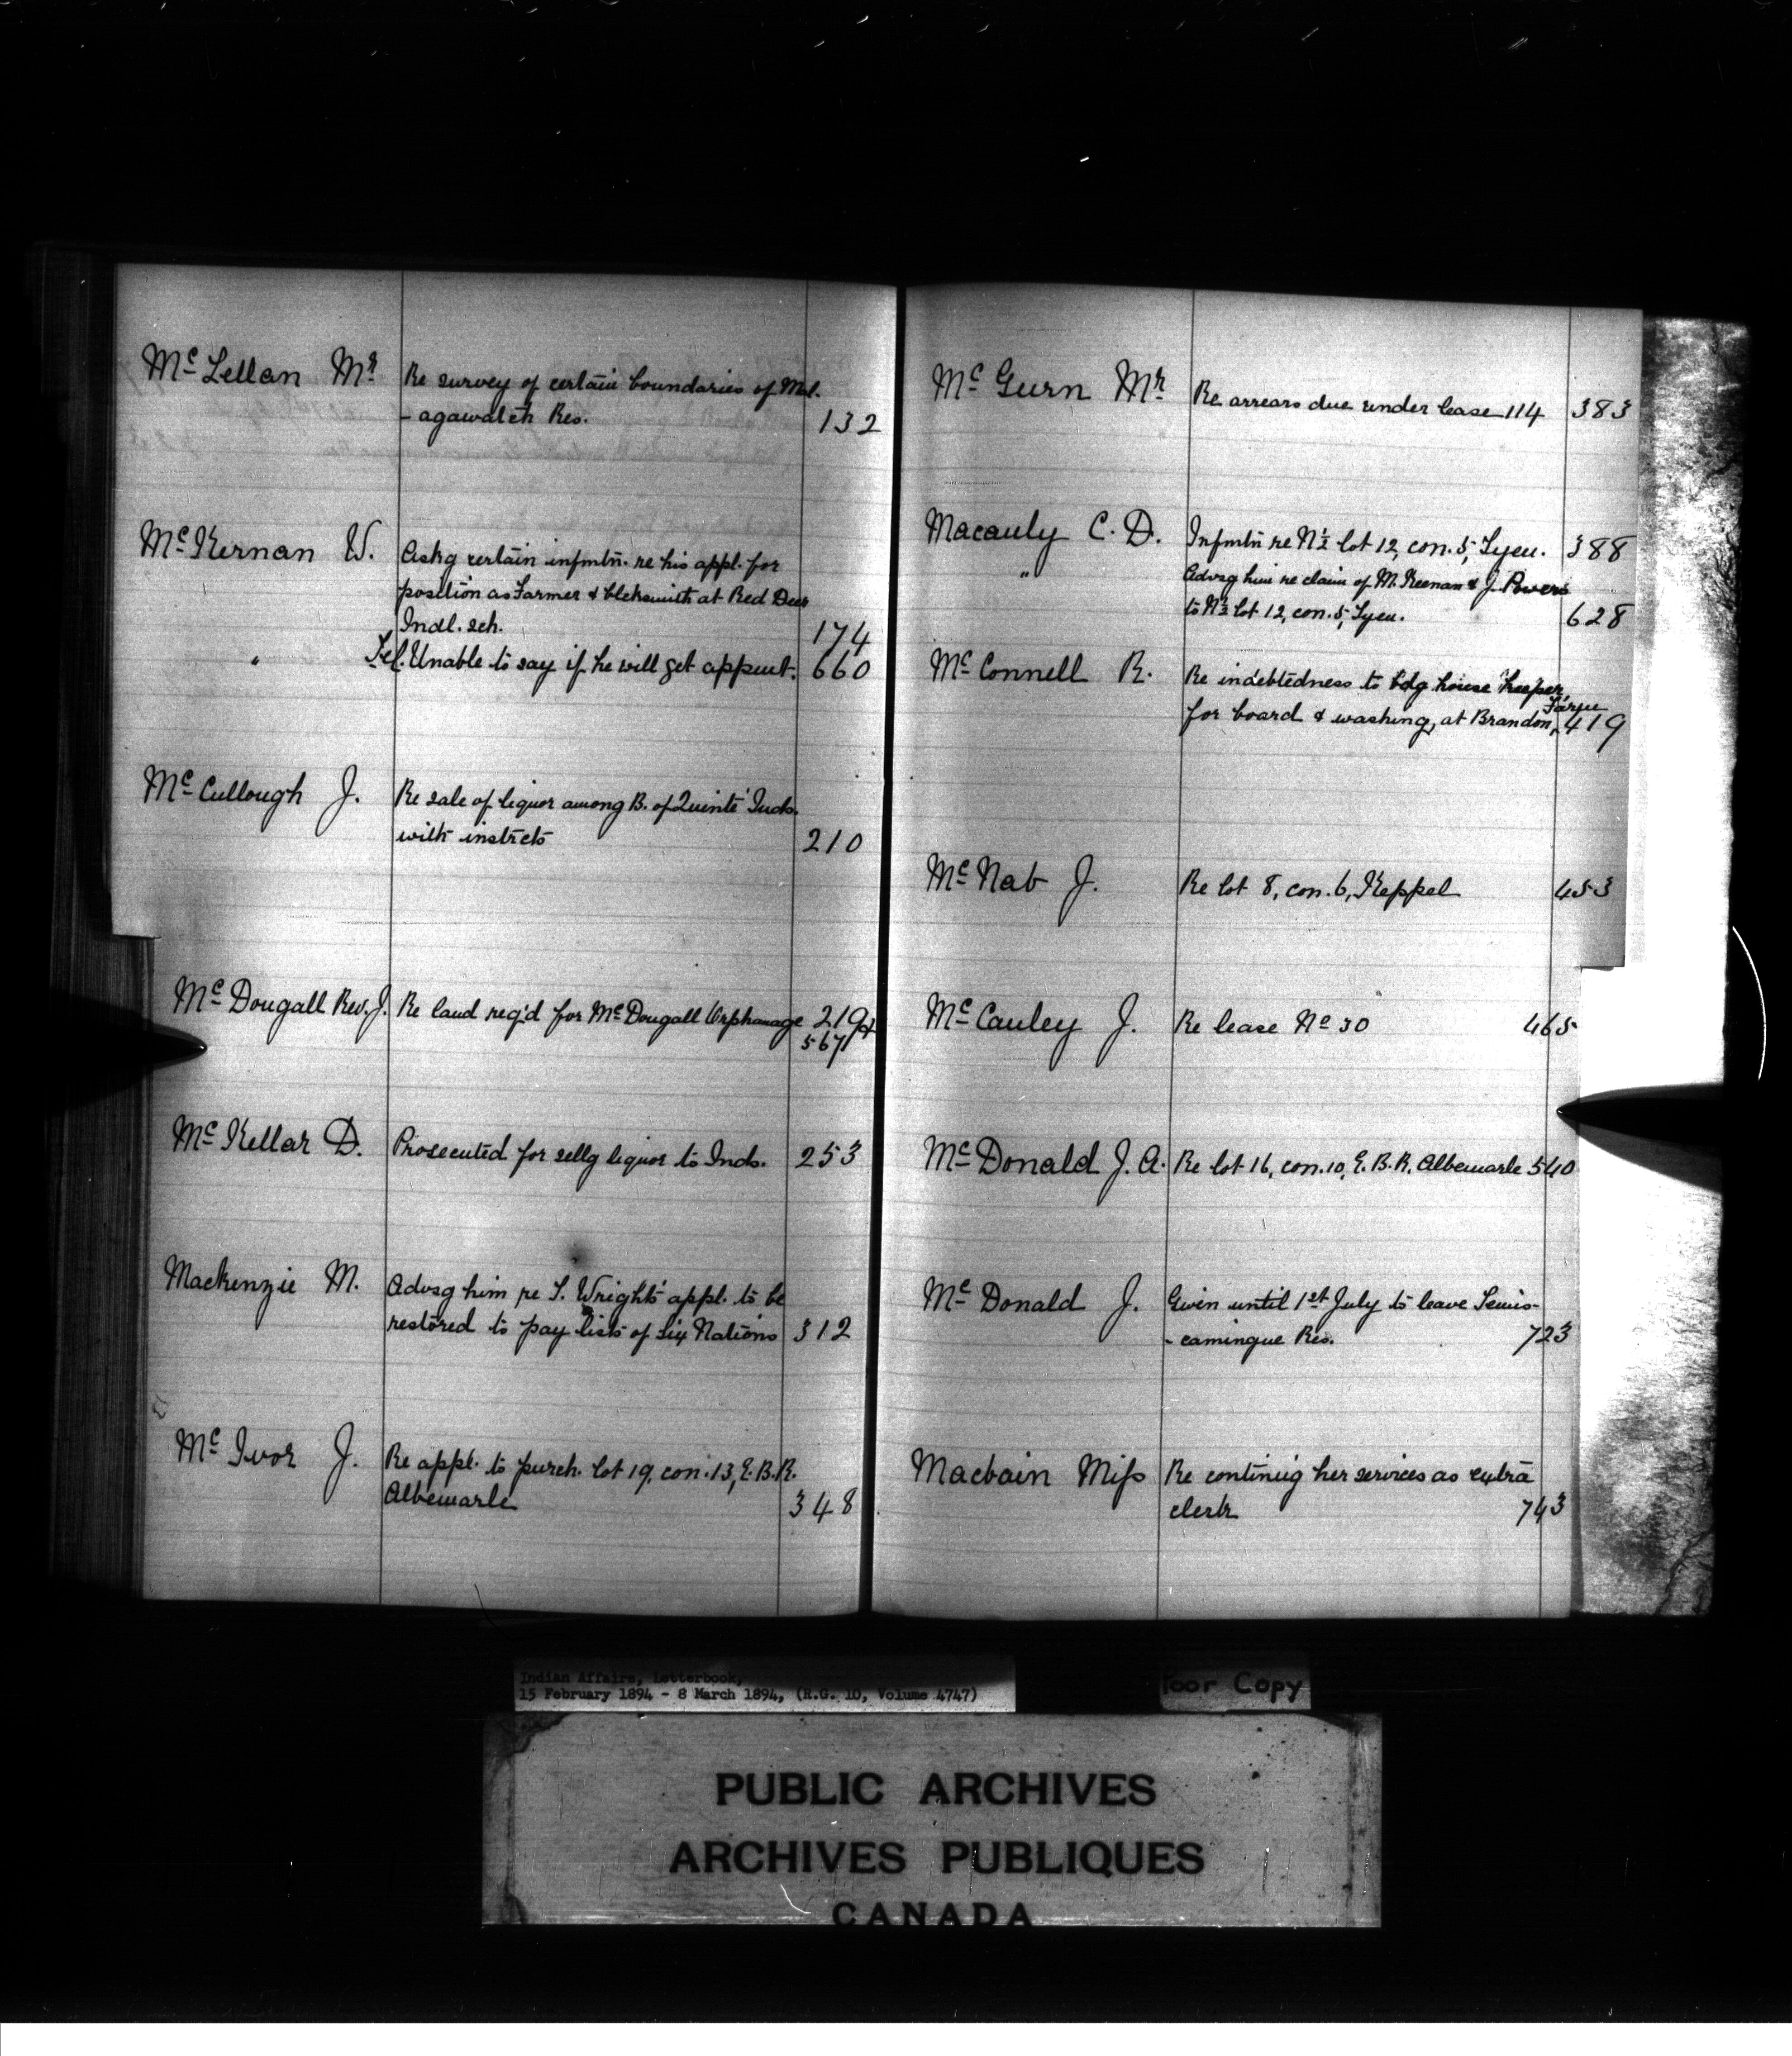 Mc Lellan Mr Re survey of certain boundaries of Mal.
- agawatch Res. 132
Mc Kernan W. Askg certain infmtn. re his appl. for
position as Farmer & blcksmith at Red Deer
Indl. sch. 174
" Tel. Unable to say if he will get appmt. 660
Mc Cullough J. Re sale of liquor among B. of Quinté Inds.
with instrcts 210
Mc Dougall Rev. J. Re land req'd for Mc Dougall Orphanage 219
567
Mc Kellar D. Prosecuted for sellg liquor to Inds. 253
Mackenzie M. Advsg him re S. Wright's appl. to be
restored to pay lists of Six Nations 312
Mc Ivor J. Re appl. to purch. lot 19, con. 13, E.B.R.
Albemarle 348
Mc Gurn Mr Re arrears due under lease 114 383
Macauly C. D. Infmtn re N½ lot 12, con. 5, Tyen. 388
" Advsg him re claim of M. Keenan & J. Powers
to N½ lot 12, con. 5, Tyen. 628
Mc Connell R. Re indebtedness to bdg house keeper,
for board & washing, at Brandon, 419
Mc Nab J. Re lot 8, con. 6, Keppel 453
Mc Cauley J. Re lease No 30 465
Mc Donald J. A. Re lot 16, con. 10, E. B. R. Albemarle 540
Mc Donald J. Given until 1st July to leave Temis-
- camingue Res. 723
Macbain Miss Re continuig her services as extra
clerk 743
Indian Affairs, Letterbook,
15 February 1894 - 8 March 1894, (R.G. 10, Volume 4747)
Poor Copy
PUBLIC ARCHIVES
ARCHIVES PUBLIQUES
CANADA